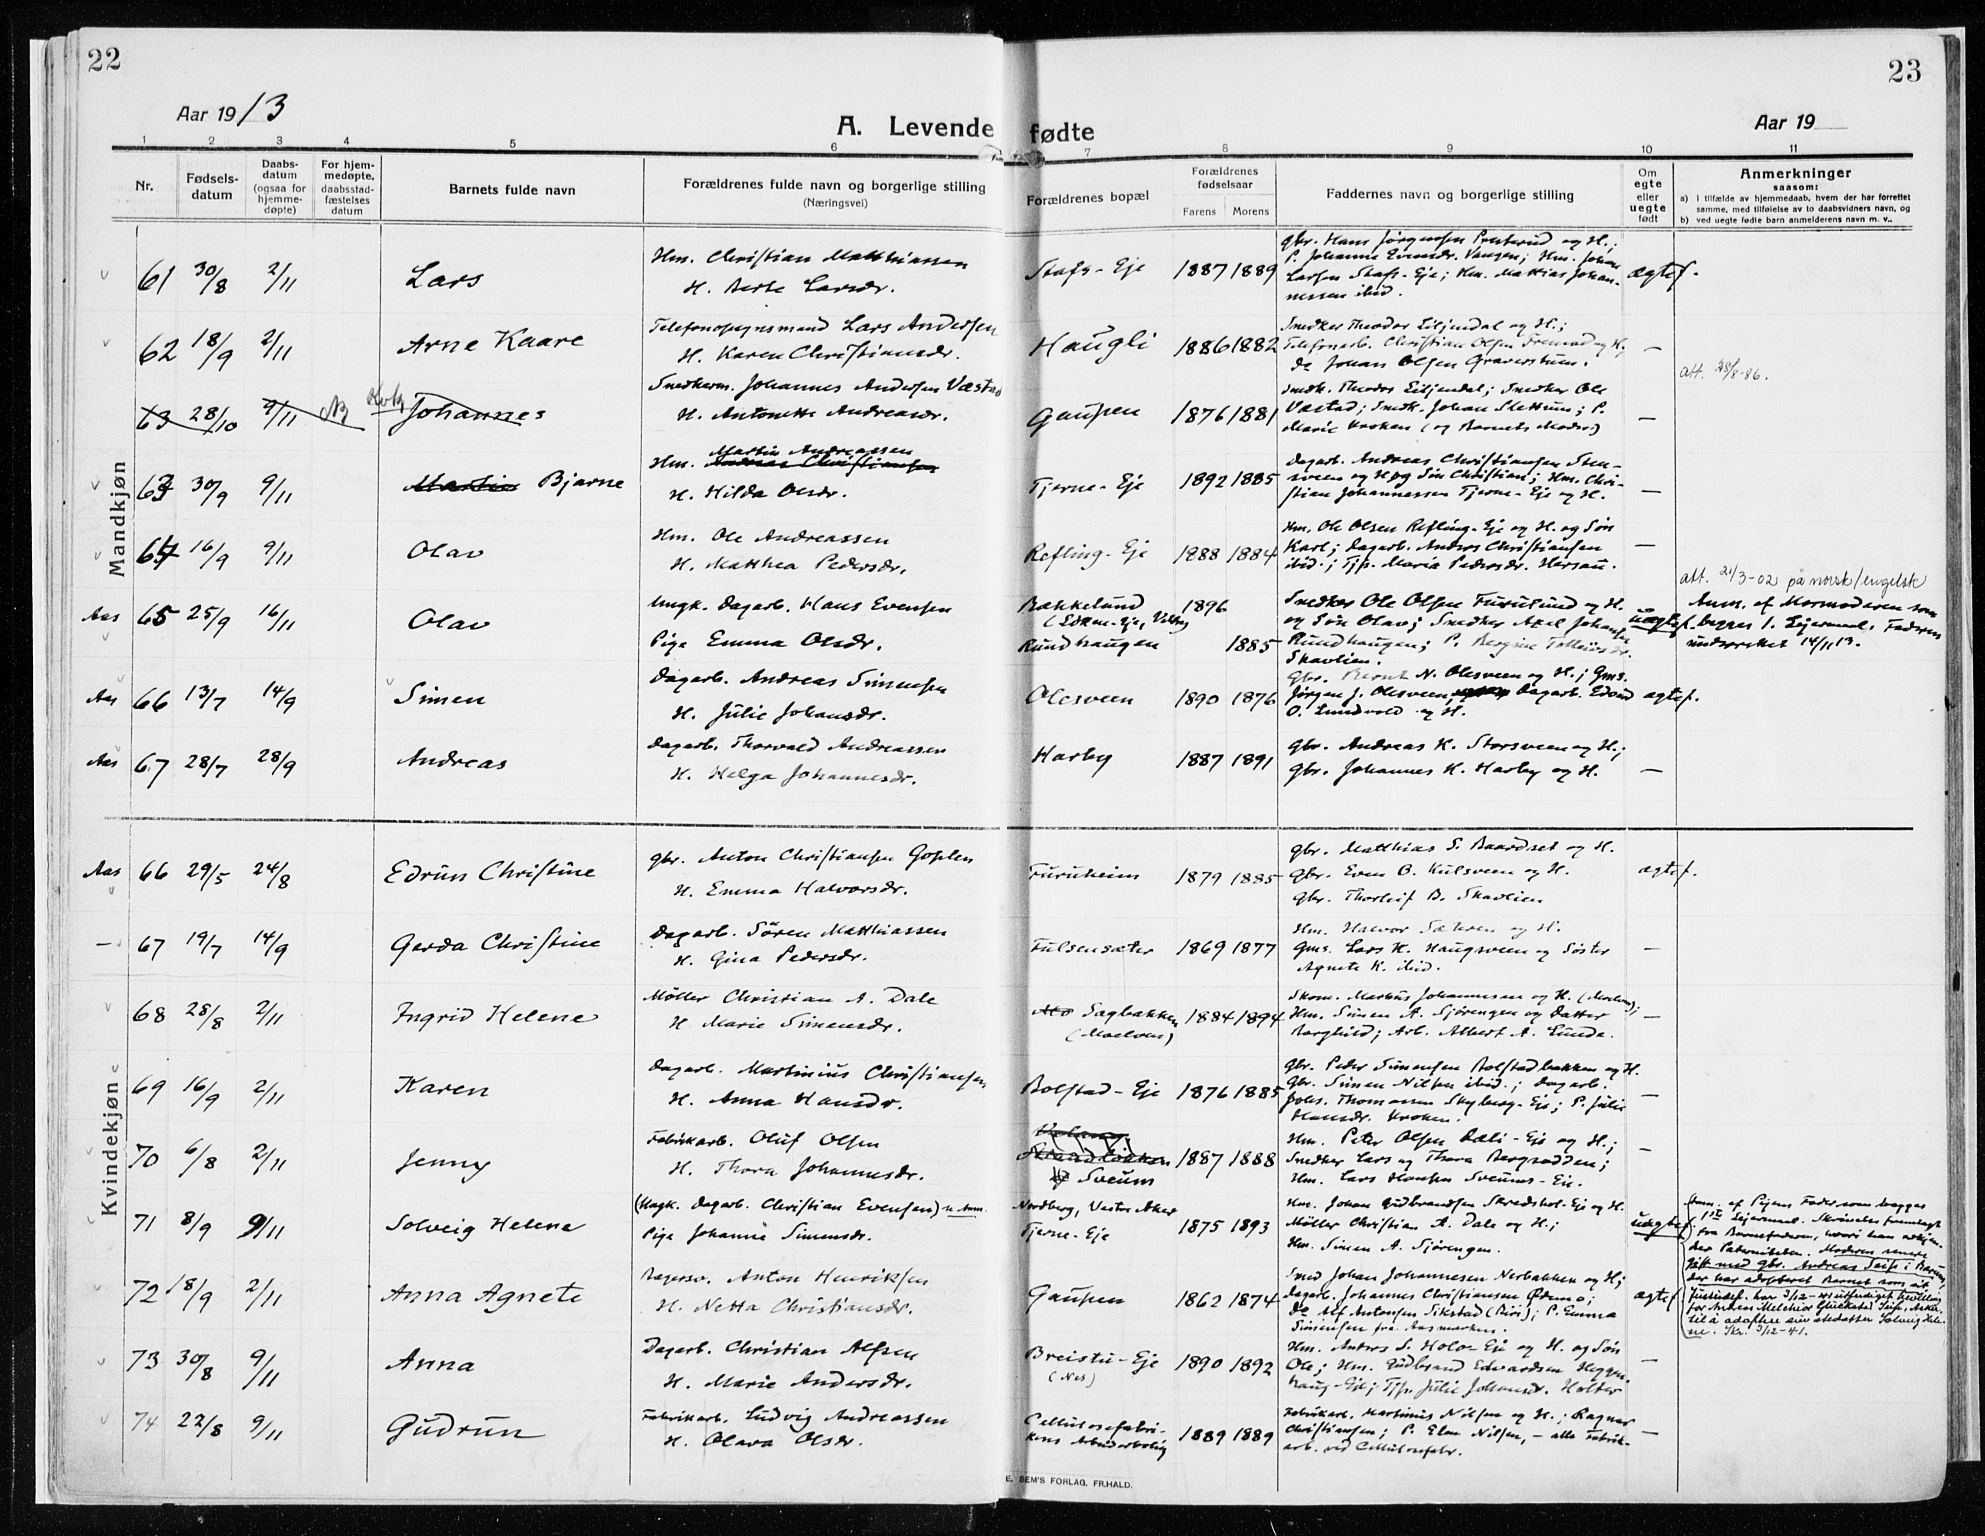 22
23
Aar 1913
A. Levende fødte
Aar 19
1 2 3 4 5 6 7 8 9 10 11
Nr.
Fødsels-
datum
Daabs-
datum
(ogsaa for
hjemme-
døpte)
For hjem-
medøpte,
daabsstad-
fæstelses
datum
Barnets fulde navn
Forældrenes fulde navn og borgerlige stilling
(Næringsvei)
Forældrenes bopæl
Forældrenes
fødselsaar
Farens Morens
Faddernes navn og borgerlige stilling
Om
egte
eller
uegte
født
Anmerkninger
saasom:
a) i tilfælde av hjemmedaab, hvem der har forrettet
samme, med tilføielse av to daabsvidners navn, og
b) ved uegte fødte barn anmelderens navn m. v..
Mandkjøn
61 30/8 2/11 Lars
Hm. Christian Matthiassen
H. Berte Larsdr.
Stafs-Eje 1887 1889
Gbr. Hans Jørgensen Presterud og H.;
P. Johanne Evensdr. Vangen; Hm. Johan
Larsen Stafs-Eje; Hm. Mathias Johan-
nessen ibid.
ægtef.
62 18/9 2/11 Arne Kaare
Telefonopsynsmand Lars Andersen
H. Karen Christiansdr.
Haugli 1886 1882
Snedker Theodor Eiljendal og H.;
Telefonarb. Christian Olsen Fremad og H;
do Johan Olsen Graverstuen.
—
att. 28/8-86.
63 28/10 2/11 Johannes
Snedkerm. Johannes Andersen Væstad
H. Antonette Andreasdr.
Gaupen 1876 1881
Snedk. Theodor Eiljendal; Snedker Ole
Væstad; Snedk. Johan Slettum; P.
Marie Kroken (og Barnets Moder)
—
63 30/9 9/11 Martin Bjarne
Martin Andreassen
Hm. Andreas Christiansen
H. Hilda Olsdr.
Tjerne-Eje 1892 1885
Dagarb. Andreas Christiansen Sten-
sveen og H og Søn Christian; Hm. Chri-
stian Johannessen Tjerne-Eje og H.
—
64 16/9 9/11 Olav
Hm. Ole Andreassen
H. Matthea Pedersdr.
Refling-Eje 1888 1884
Hm. Ole Olsen Refling-Eje og H. og Søn
Karl; Dagarb. Anders Christiansen
ibid.; Tjp. Maria Pedersdr. Hersau.
—
att. 21/3-02 på norsk/engelsk
Aas 65 25/9 16/11 Olav
Ungk. Dagarb. Hans Evensen
Pige Emma Olsdr.
Bakkelund 1896
Rundhaugen 1885
Snedker Ole Olsen Furulund og H.
og Søn Olav; Snedker Axel Johansen
Rundhaugen; P. Bergine Tolleivsdr.
Skavlien.
uægtef.
Anm. af Mormoderen som
begges 1. Leiermaal. Faderen
underrettet 14/11 13.
Aas 66 13/7 14/9 Simen
Dagarb. Andreas Simensen
H. Julie Johansdr.
Olesveen 1890 1876
Gbr. Bernt N. Olesveen og H.; Gms.
Jørgen J. Olesveen, Dagarb. Edvard
O. Lundvold og H.
ægtef.
Aas 67 28/7 28/9 Andreas
Dagarb. Thorvald Andreassen
H. Helga Johannesdr.
Harby 1887 1891
Gbr. Andreas K. Storsveen og H.;
Gbr. Johannes H. Harby og H.
—
Kvindekjøn
Aas 66 29/5 24/8 Edrun Christine
Gbr. Anton Christiansen Goplen
H. Emma Halvorsdr.
Furuheim 1879 1885
Gbr. Matthias S. Baardset og H.
Gbr. Even O. Kulsveen og H.
Gbr. Thorleif B. Skavlien
ægtef.
— 67 19/7 14/9 Gerda Christine
Dagarb. Søren Matthiassen
H. Gina Pedersdr.
Fulsensæter 1869 1877
Hm. Halvor Sæteren og H.
Gms. Lars K. Haugsveen og Søster
Agnete K. ibid.
—
68 28/8 2/11 Ingrid Helene
Møller Christian A. Dale
H Marie Simensdr.
Mo Sagbakken
(Moelven)
1884 1894
Skom. Markus Johannesen og H. (Moelven);
Hm. Simen A. Sjørengen og Datter
Borghild; Arb. Albert A. Lunde.
—
69 16/9 2/11 Karen
Dagarb. Martinius Christiansen
H. Anna Hansdr.
Bolstad-Eje 1876 1885
Gbr. Peder Simensen Bolstadbakken og H.
Gbr. Simen Nilsen ibid.; Dagarb.
Johs. Thomassen Skyberg-Eje; P. Julie
Hansdr. Kroken.
—
70 6/8 2/11 Jenny
Fabrikarb. Oluf Olsen
H. Thora Johannesdr.
Strandbakken
Sveum
1887 1888
Hm. Peter Olsen Dæli-Eje og H.;
Snedker Lars og Thora Bergsodden;
Hm. Lars Hansen Sveums-Eie.
—
71 8/9 9/11 Solveig Helene
(Ungk. Dagarb. Christian Evensen) se Anm.
Pige Johanne Simensdr.
Nordberg, Vestre Aker
Tjerne-Eje
1875 1893
Hm. Johan Gudbrandsen Skredshol-Eje og H.
Møller Christian A. Dale og H.;
Hm. Simen A. Sjørengen.
uægtef.
Anm. af Pigens Fader som begges
1ste Leiermaal. Skriveles fremlagt
fra Barnefaderen, hvori han vedkjen-
der Paterniteten. Moderen senere
gift med gbr. Andreas Seip i Bærum,
der har adopteret Barnet som sit
til å adoptere sin stedatter Solveig Hele-
ne. Skr. 3/12-41.
72 18/9 2/11 Anna Agnete
Bagersv. Anton Henriksen
H. Netta Christiansdr.
Gaupen 1862 1874
Smed Johan Johannesen Nerbakken og H;
Dagarb. Johannes Christiansen Ødemo;
Do Alf Antonsen Sikstad (Biri); P. Emma
Simensen fra Aasmarken.
ægtef.
73 30/8 9/11 Anna
Dagarb. Christian Alfsen
H. Marie Andersdr.
Breistu-Eje
(Nes)
1890 1892
Hm. Anders S. Holo-Eje og H. og Søn
Ole; Hm. Gudbrand Edvardsen Heggen-
haug-Eie; Tjp. Julie Johansdr. Holter
—
74 22/8 9/11 Gudrun
Fabrikarb. Ludvig Andreassen
H. Olava Olsdr.
Cellulosefabri-
kens Arbeiderbolig
1889 1889
Fabrikarb. Martinus Nilsen og H.; Ragnar
Christiansen; P. Elen Nilsen, — alle Fabrik-
arb. ved Cellulosefabr.
—
E. SEM'S FORLAG, FR.HALD.